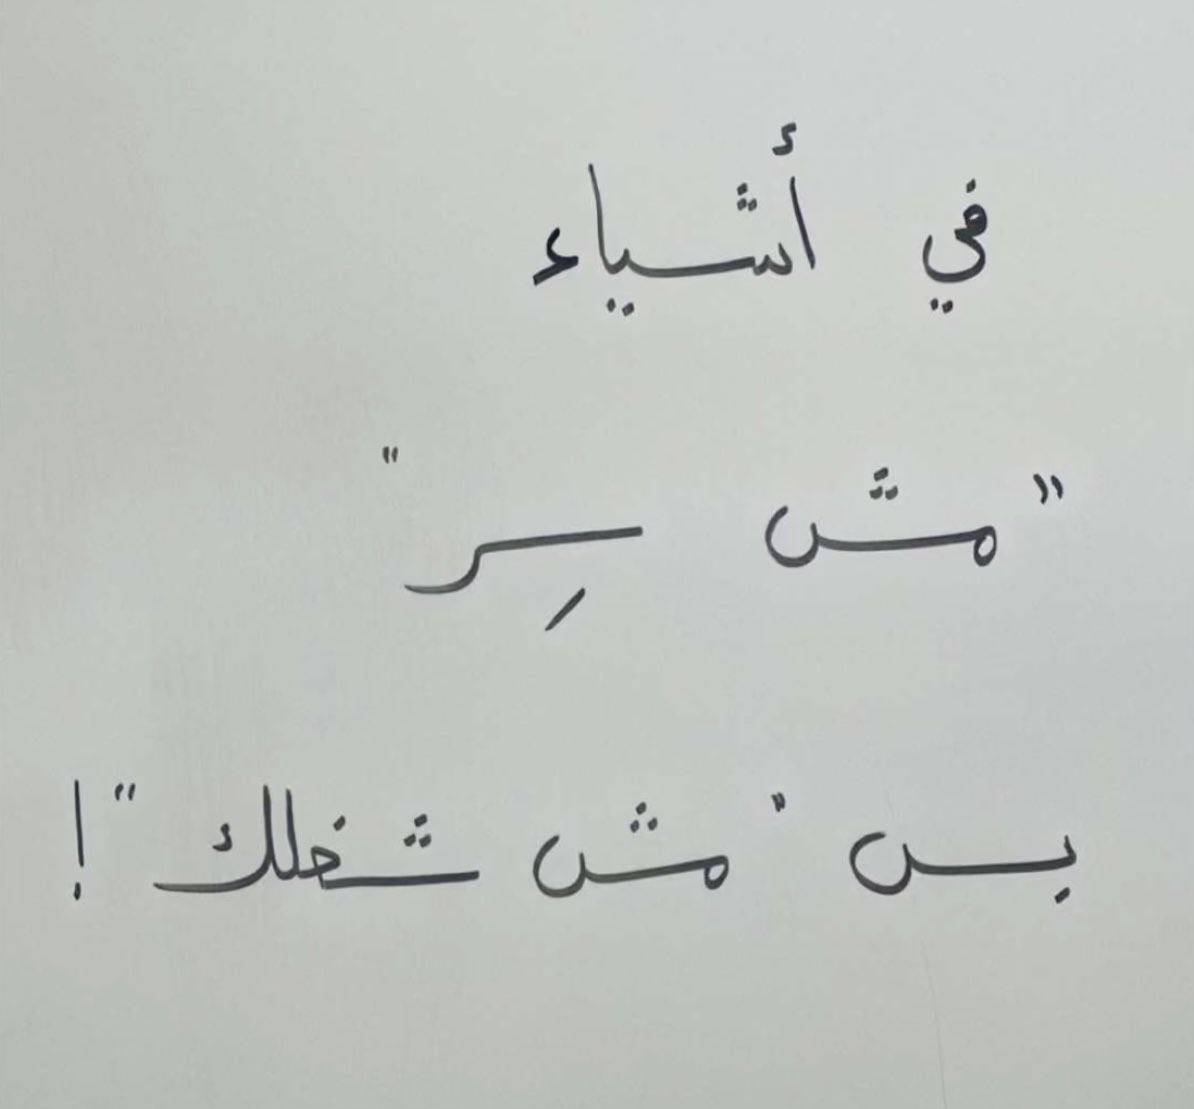 في أشياء
"مش سِر"
بس "مش شغلك"!